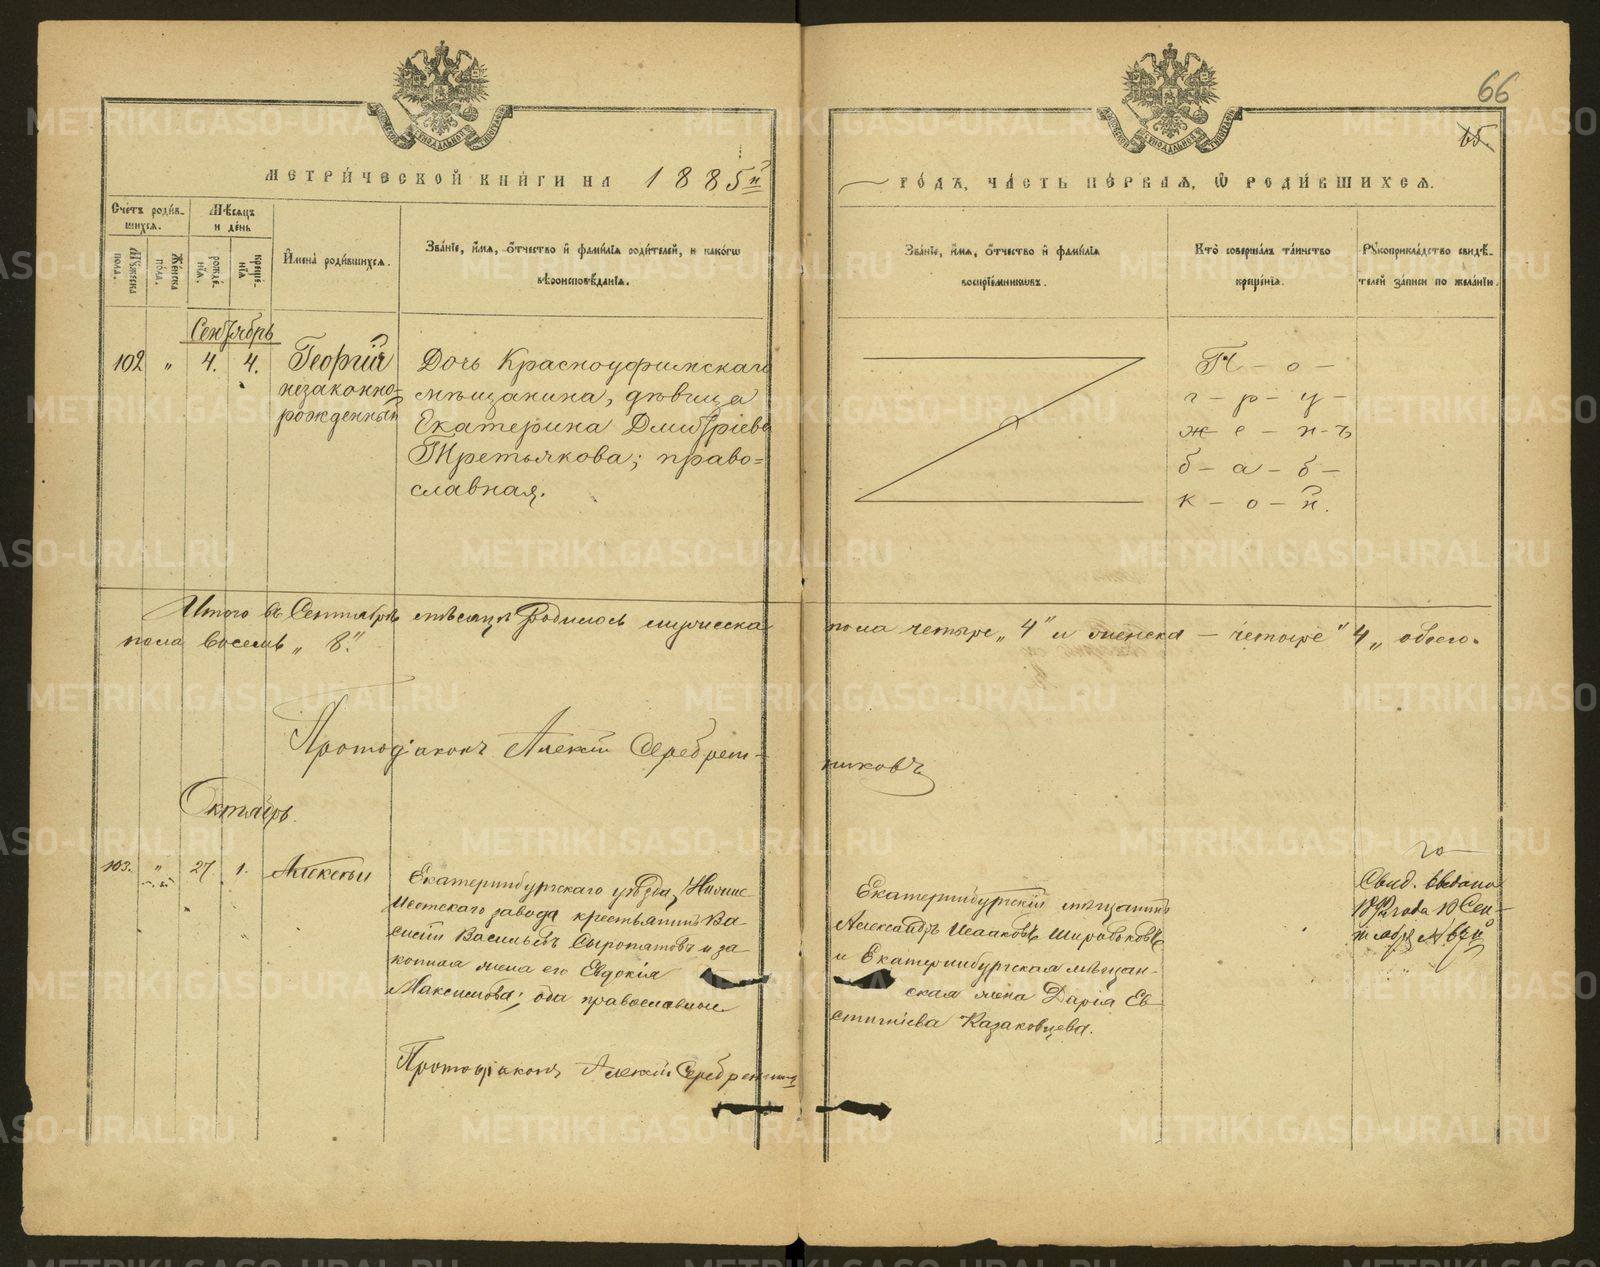 66
65.
МЕТРИ́ЧЕСКОЙ КНИ́ГИ НА 1885й
ГО́ДЪ, ЧА́СТЬ ПЕ́РВАЯ, Ѡ РОДИ́ВШИХСЯ.
Сче́тъ роди́в-
шихся.
Мѣ́сяцъ
и де́нь
Му́жеска
по́ла.
Же́нска
по́ла.
рожде́-
нїя.
креще́-
нїя
И҆мена̀ роди́вшихся.
Зва́нїе, и҆́мя, ѻ҆́тчество и҆ фами́лїя роди́телей, и како́гѡ
вѣроисповѣ́данїя.
Зва́нїе, и҆́мя, ѻ҆́тчество и҆ фами́лїя
воспрїе́мникѡвъ.
Кто̀ соверша́лъ та́инство
креще́нїя.
Рꙋкоприкла́дство свидѣ́-
телей за́писи по жела́нїю.
Сентябрь
102 „ 4. 4. Георгій
незаконно-
рожденный
Дочь Красноуфимскаго
мѣщанина, дѣвица
Екатерина Дмитріева
Третьякова; право=
славная.
П – о –
г – р – у –
ж – е – н – ъ
б – а – б –
к – о – й.
Итого въ Сентябрѣ мѣсяцѣ родилось мужеска
пола четыре „4“ и женска – четыре „4„ обоего
пола восемь „8“.
Протодіаконъ Алексій Серебрен-
никовъ
Октябрь.
103. „ 27 1. Алексѣй
Екатеринбургскаго уѣзда, Нижне
Исетскаго завода крестьянинъ Ва-
силій Васильевъ Сыропятовъ и за
конная жена его Евдокія
Максимова; оба православные
Екатеринбургскій мѣщанинъ
Александръ Исааковъ
и Екатеринбургская мѣщан-
ская жена Дарія Ев-
стигнѣева Казаковцева.
Свид. выдано
года 10 Сен-
тября №
Протодіаконъ Алексій Серебренниковъ